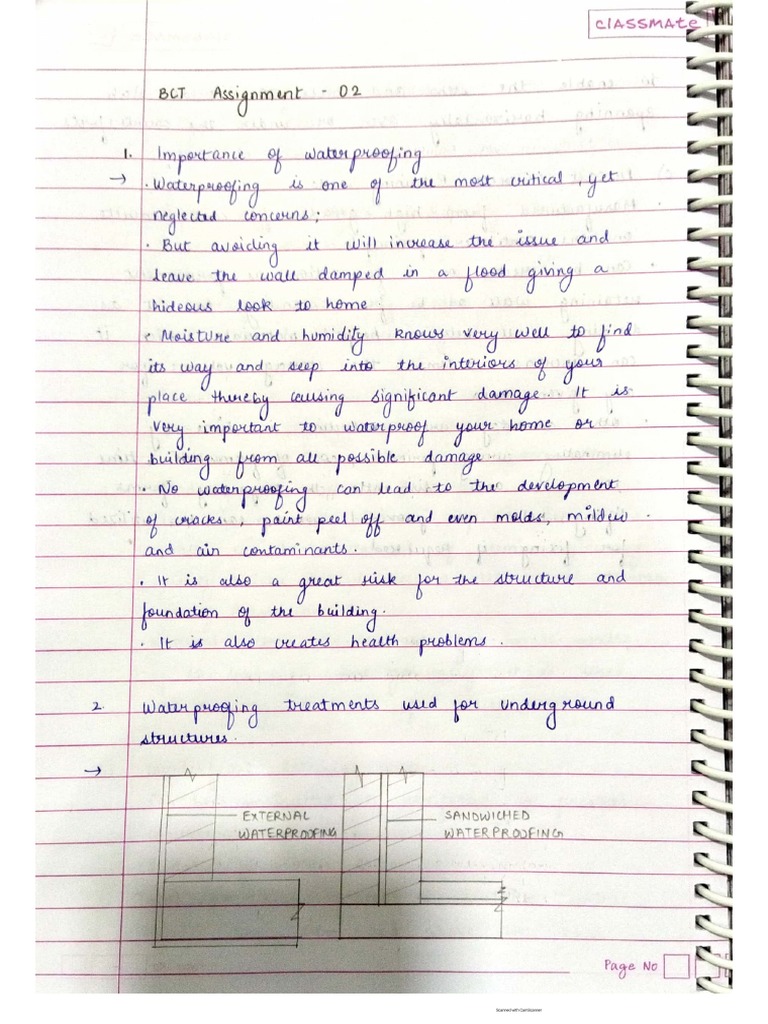 classmate
BCT Assignment - 02
1. Importance of waterproofing
→ · Waterproofing is one of the most critical, yet
neglected concerns;
· But avoiding it will increase the issue and
leave the wall damped in a flood giving a
hideous look to home.
· Moisture and humidity knows very well to find
its way and seep into the interiors of your
place thereby causing significant damage. It is
very important to waterproof your home or
building from all possible damage.
· No waterproofing can lead to the development
of cracks, paint peel off and even molds, mildew
and air contaminants.
· It is also a great risk for the structure and
foundation of the building.
· It is also creates health problems.
2. Waterproofing treatments used for underground
structures.
→
EXTERNAL
WATERPROOFING
SANDWICHED
WATERPROOFING
Page No
Scanned with CamScanner